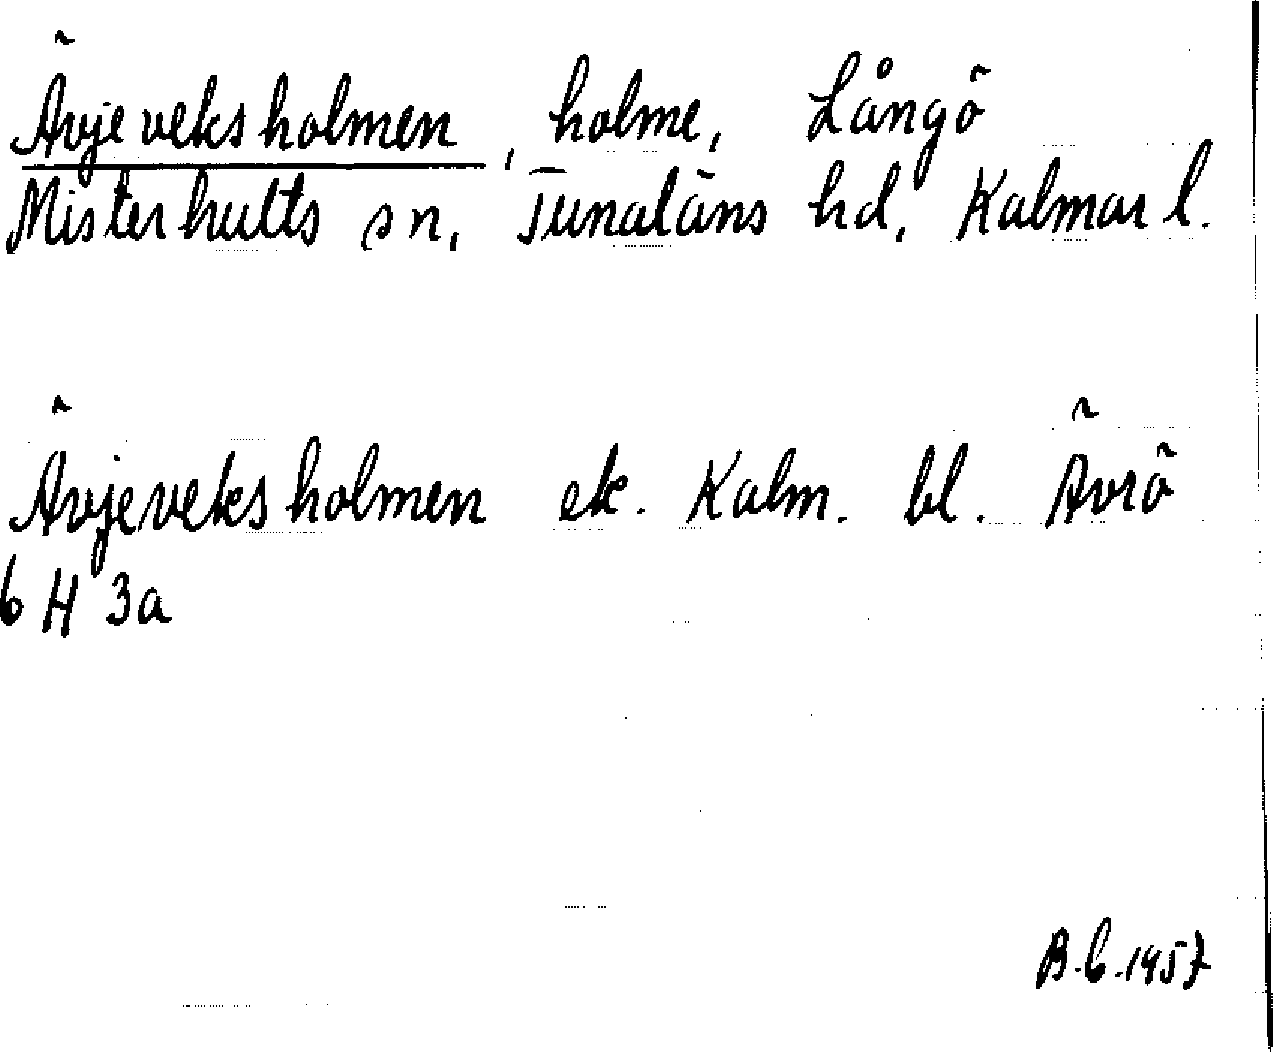 Ävjeveksholmen, holme, Långö
Misterhults sn, Tunaläns hd, Kalmar l.
Ävjeveksholmen ek. Kalm. bl. Ävrö
6 H 3a
B.C. 1957